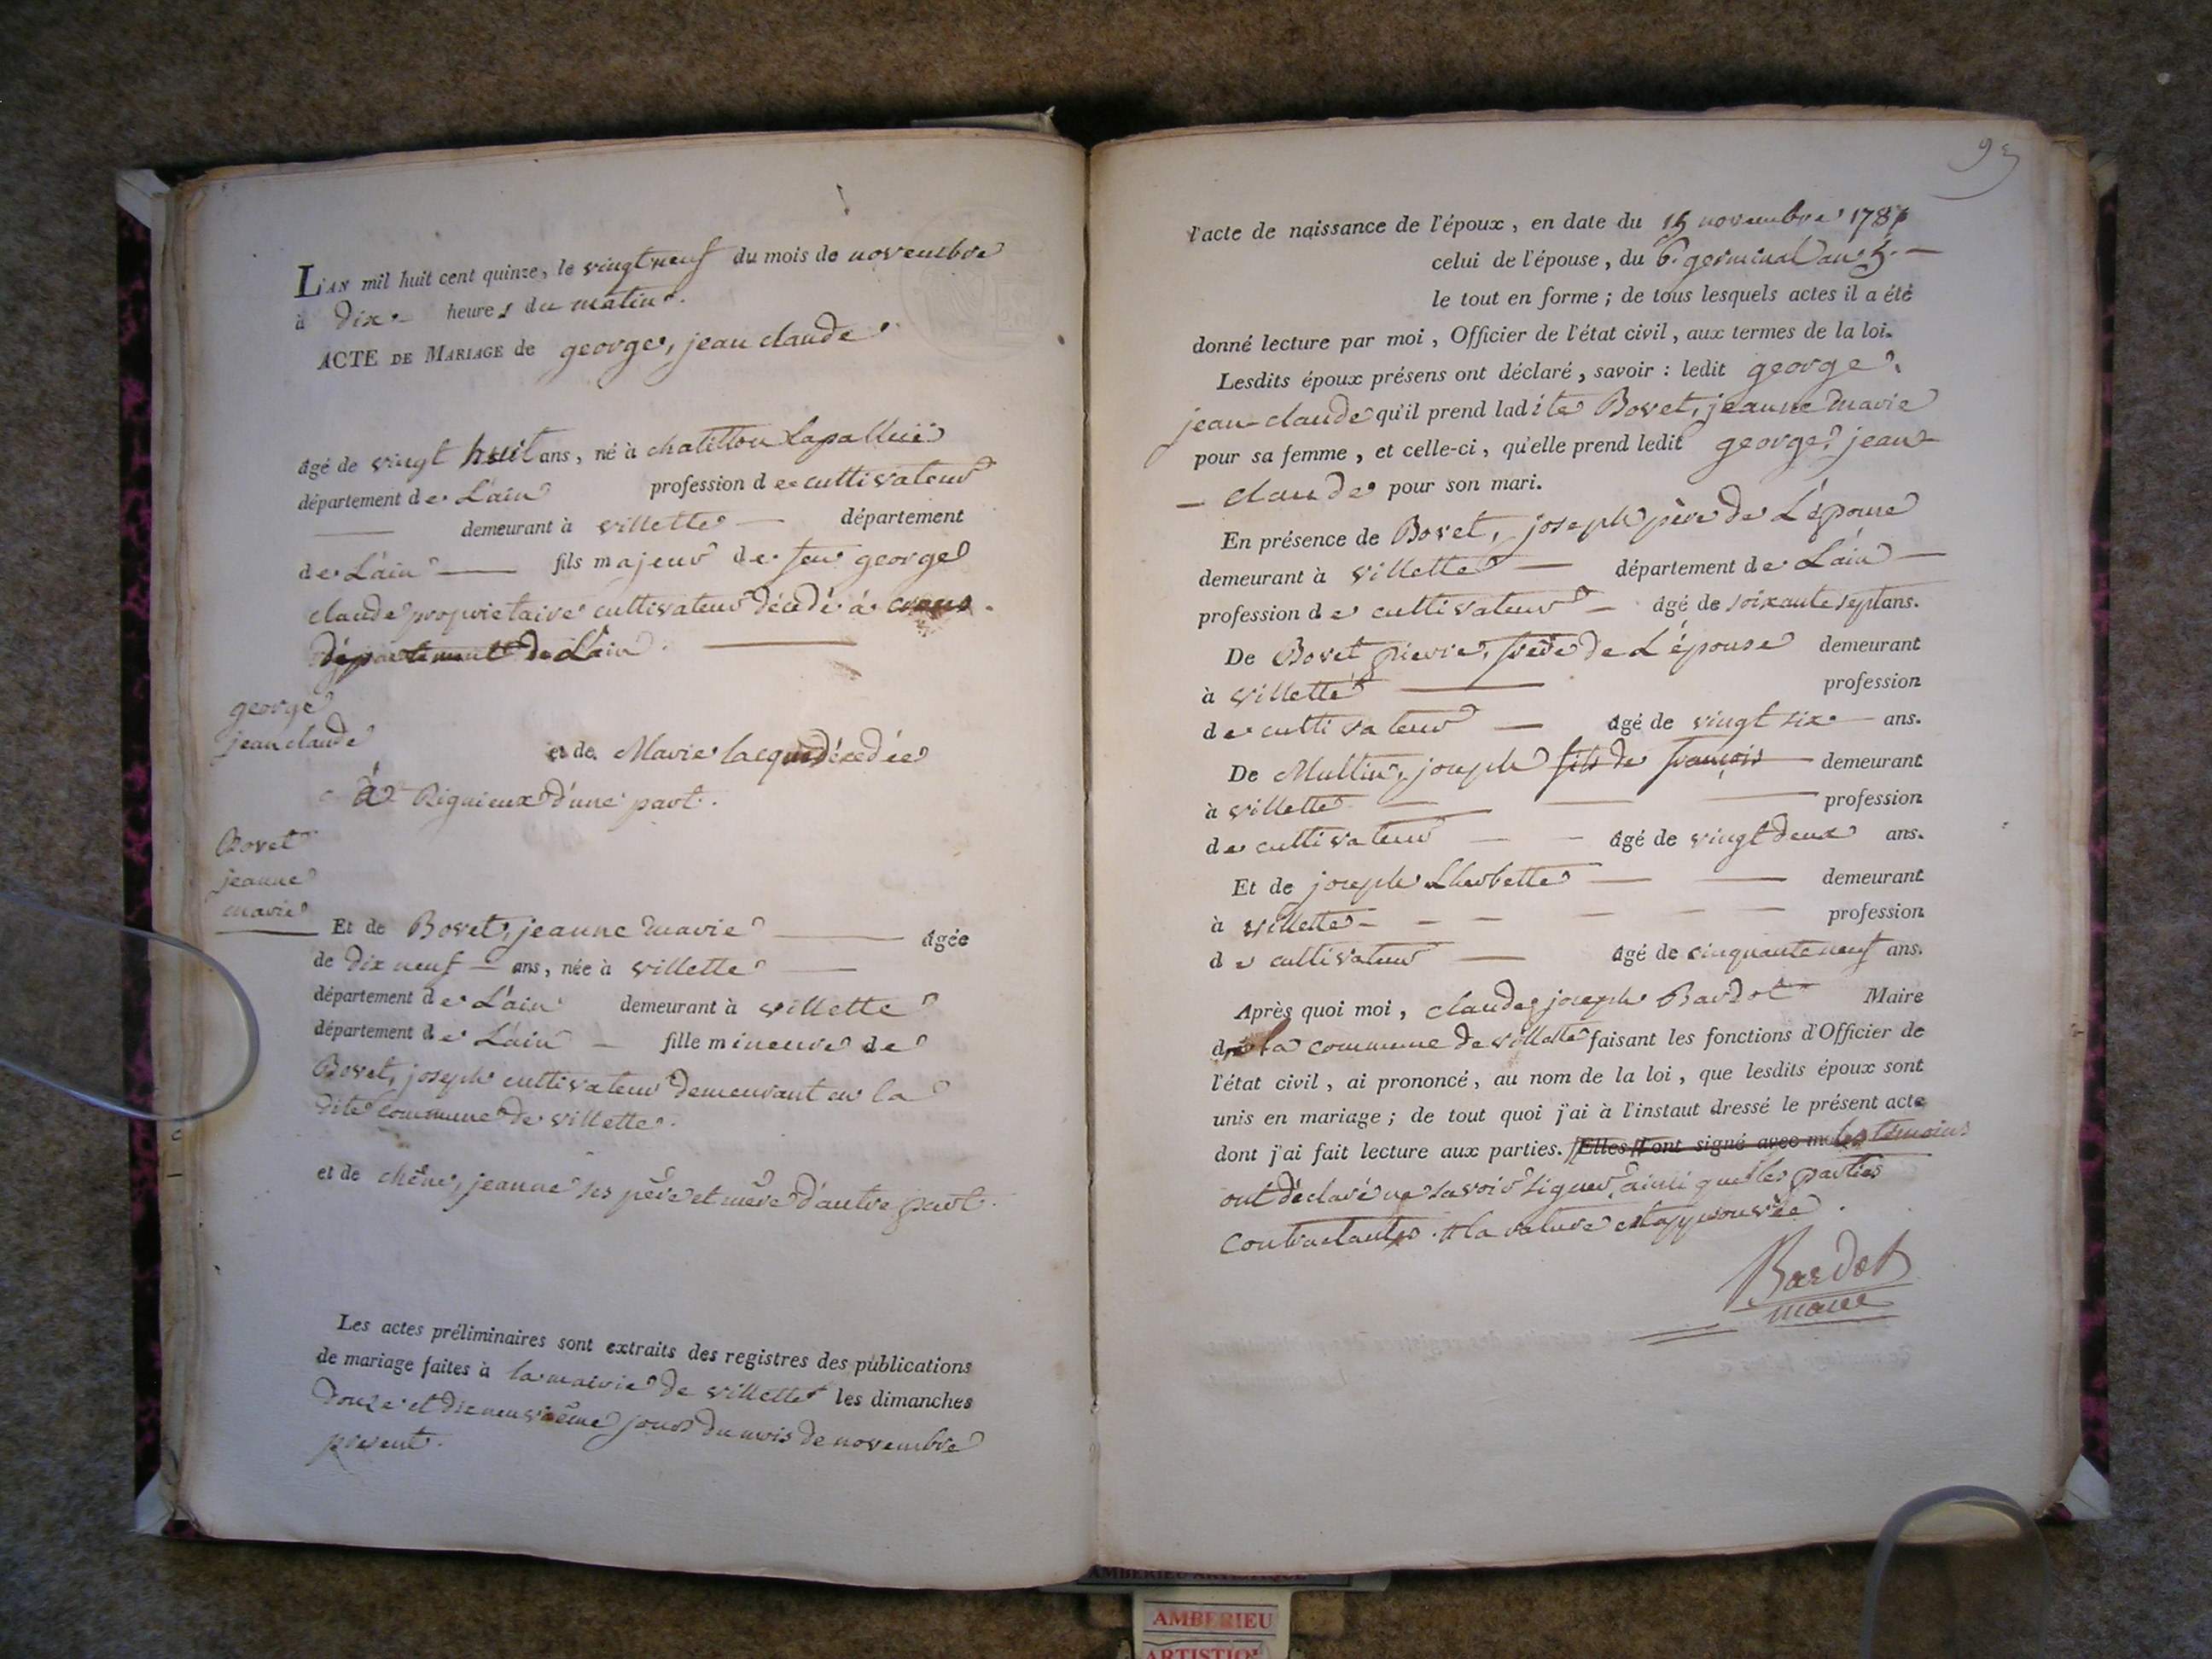 L'AN mil huit cent quinze, le vingt neuf du mois de novembre
à dix heures du matin.
ACTE DE MARIAGE de george, jean claude
âgé de vingt huit ans, né à chatillon lapallui
département de L'ain profession de cultivateur
demeurant à villette département
de L'ain fils majeur de feu george
claude proprietaire cultivateur décédé à crans
département de L'ain.
george
jean claude
et de Marie lacque décédée
à Rignieux d'une part.
Bovet
jeanne
marie
Et de Bovet, jeanne marie âgée
de dix neuf ans, née à villette
département de L'ain demeurant à villette
département de L'ain fille mineure de
Bovet, joseph cultivateur demeurant en la
dite commune de villette.
et de chêne, jeanne ses père et mère d'autre part.
Les actes préliminaires sont extraits des registres des publications
de mariage faites à la mairie de villette les dimanches
douze et dix neuvième jours du mois de novembre
present.
93
l'acte de naissance de l'époux, en date du 15 novembre 1787
celui de l'épouse, du 6. germinal an 5.
le tout en forme ; de tous lesquels actes il a été
donné lecture par moi, Officier de l'état civil, aux termes de la loi.
Lesdits époux présens ont déclaré, savoir : ledit george,
jean-claude qu'il prend ladite Bovet, jeanne marie
pour sa femme, et celle-ci, qu'elle prend ledit george, jean
- claude pour son mari.
En présence de Bovet, joseph père de L'épouse
demeurant à villette département de L'ain
profession de cultivateur âgé de soixante sept ans.
De Bovet pierre, frère de L'épouse demeurant
à villette profession
de cultivateur âgé de vingt six ans.
De Mullin, joseph fils de françois demeurant
à villette profession
de cultivateur âgé de vingt deux ans.
Et de joseph Lherbette demeurant
à villette profession
de cultivateur âgé de cinquante neuf ans.
Après quoi moi, claude joseph Bardot Maire
de la commune de villette faisant les fonctions d'Officier de
l'état civil, ai prononcé, au nom de la loi, que lesdits époux sont
unis en mariage ; de tout quoi j'ai à l'instant dressé le présent acte
dont j'ai fait lecture aux parties. Elles ont signé avec moi les témoins
ont déclaré ne savoir signer, ainsi que les parties
contractantes. # la rature est approuvée.
Bardot
maire
AMBERIEU ARTISTIQUE
AMBERIEU
ARTISTIQ